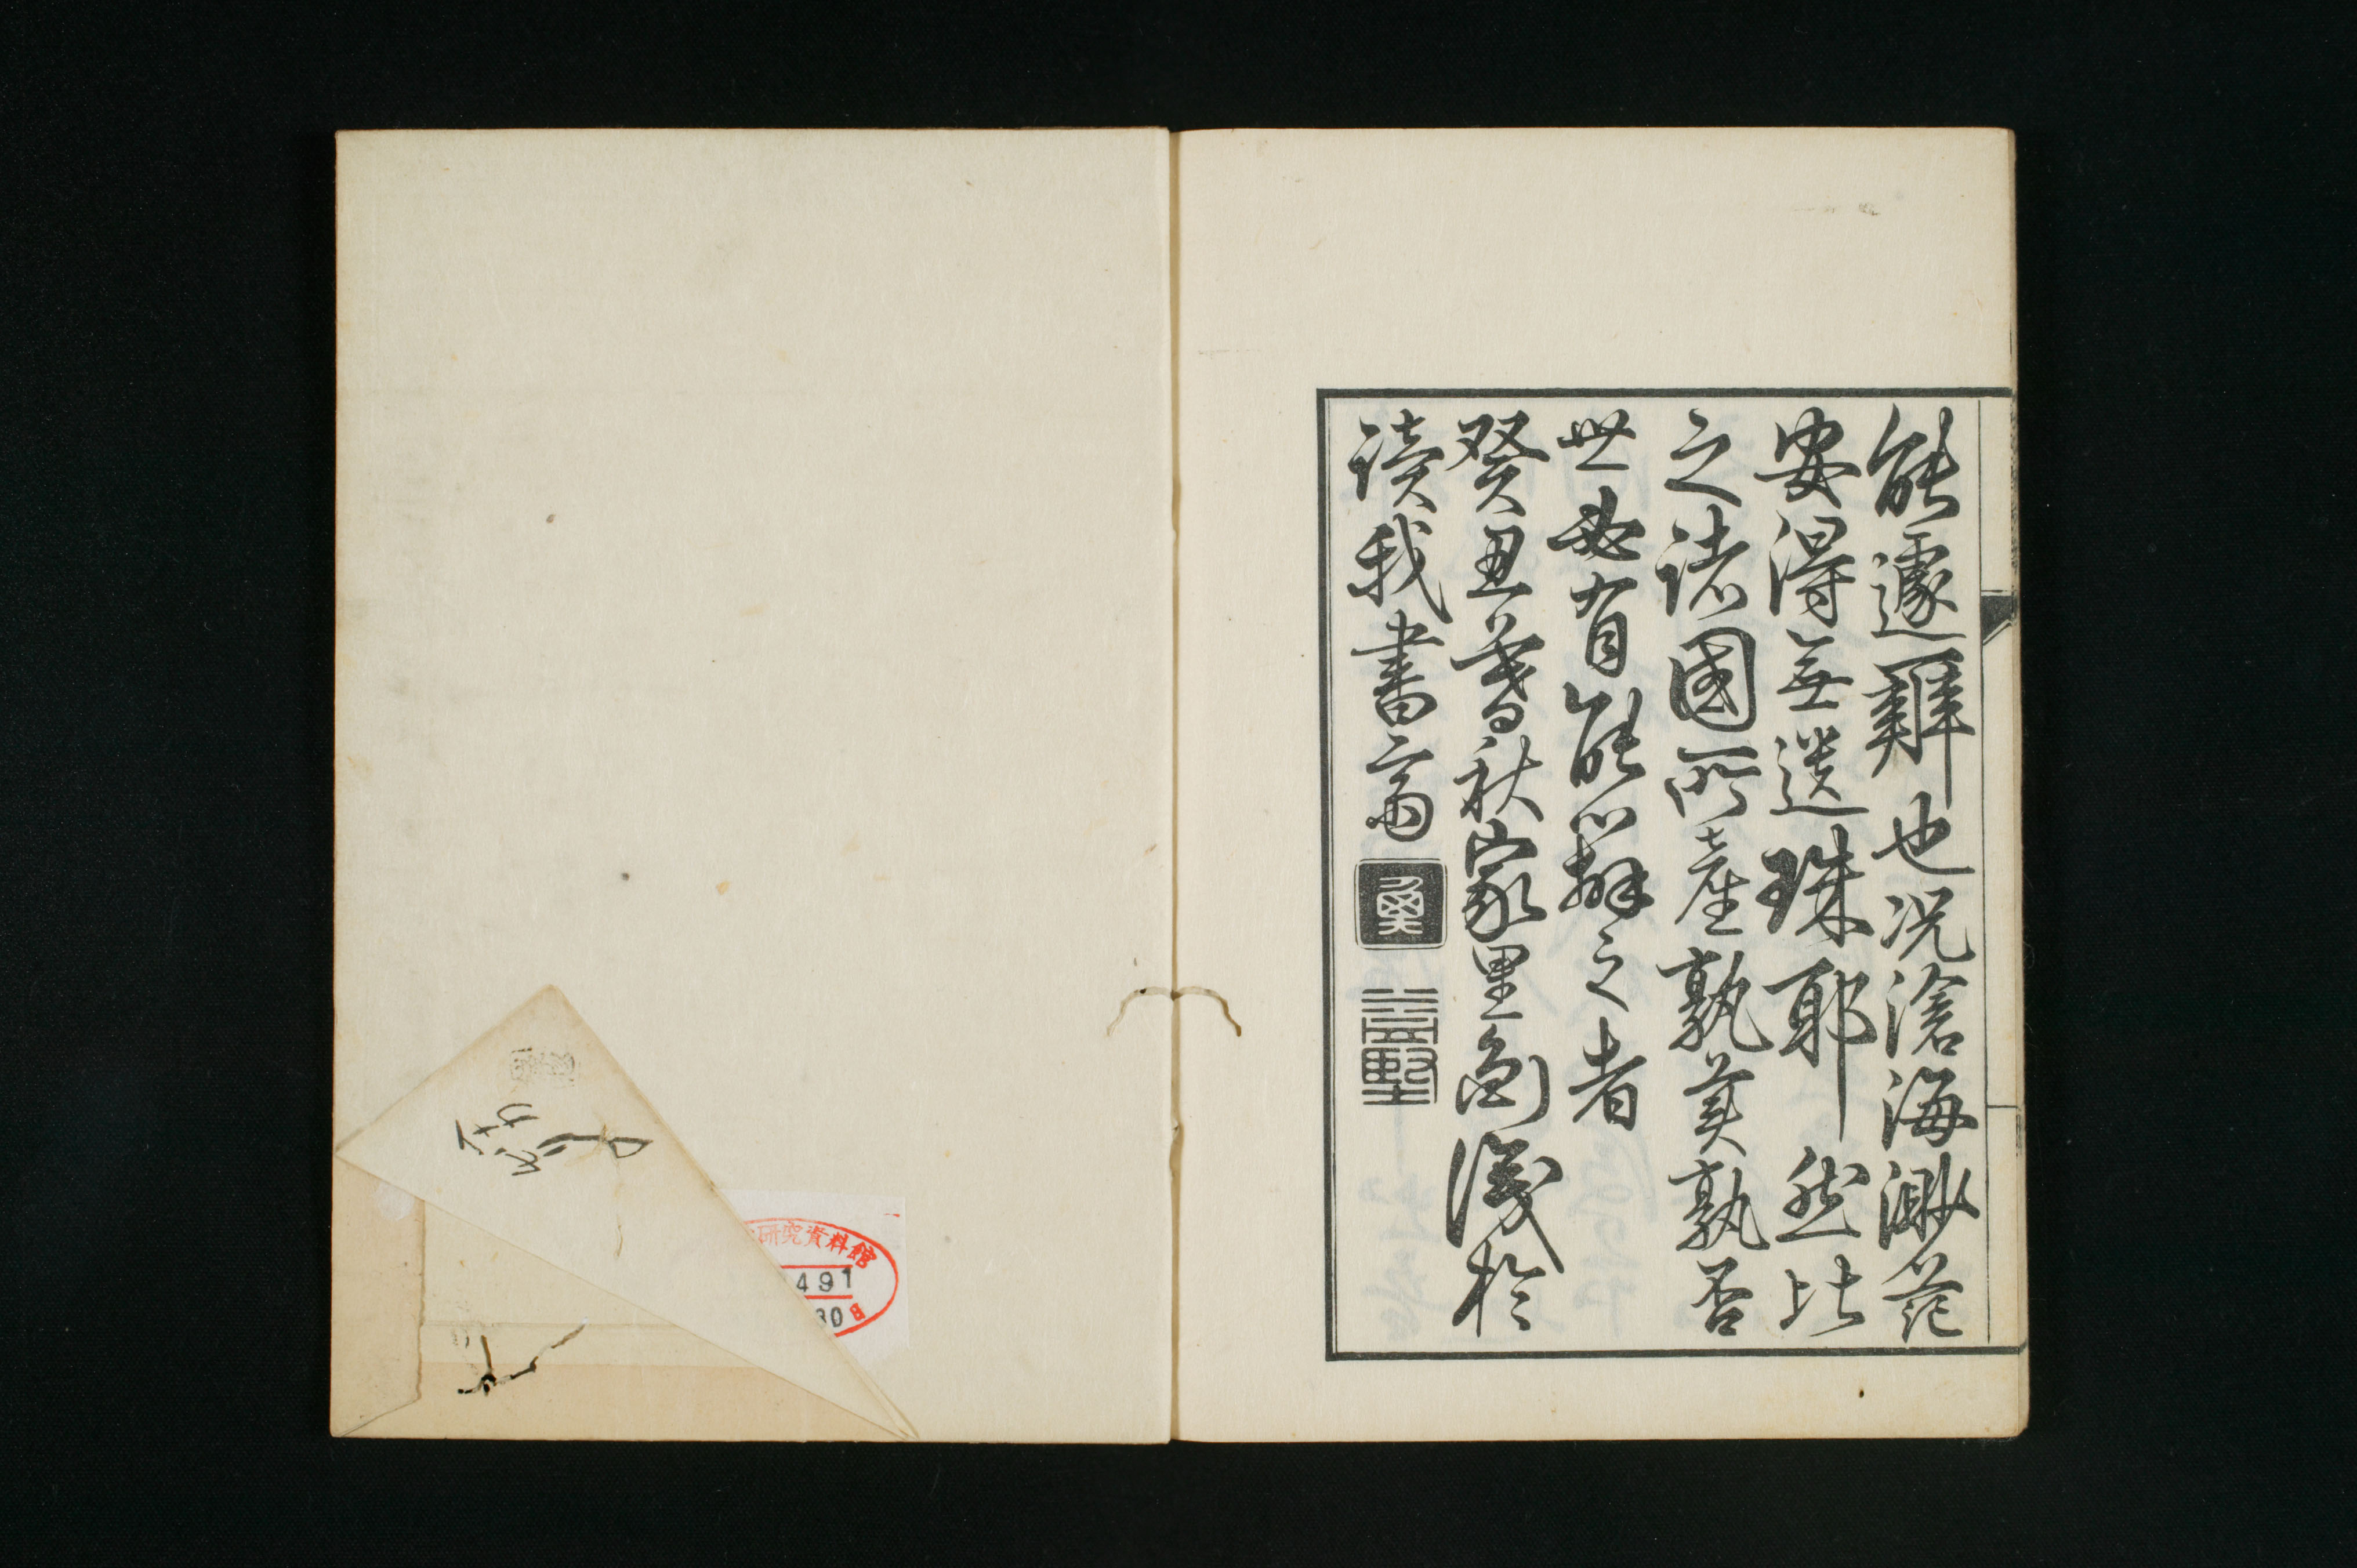 能遽辨也況滄海渺茫
安得無遺珠耶然比
之諸國所產孰美孰否
世必有能辨之者
癸丑暮秋家里衡識於
讀我書齋
研究資料館
491
30日